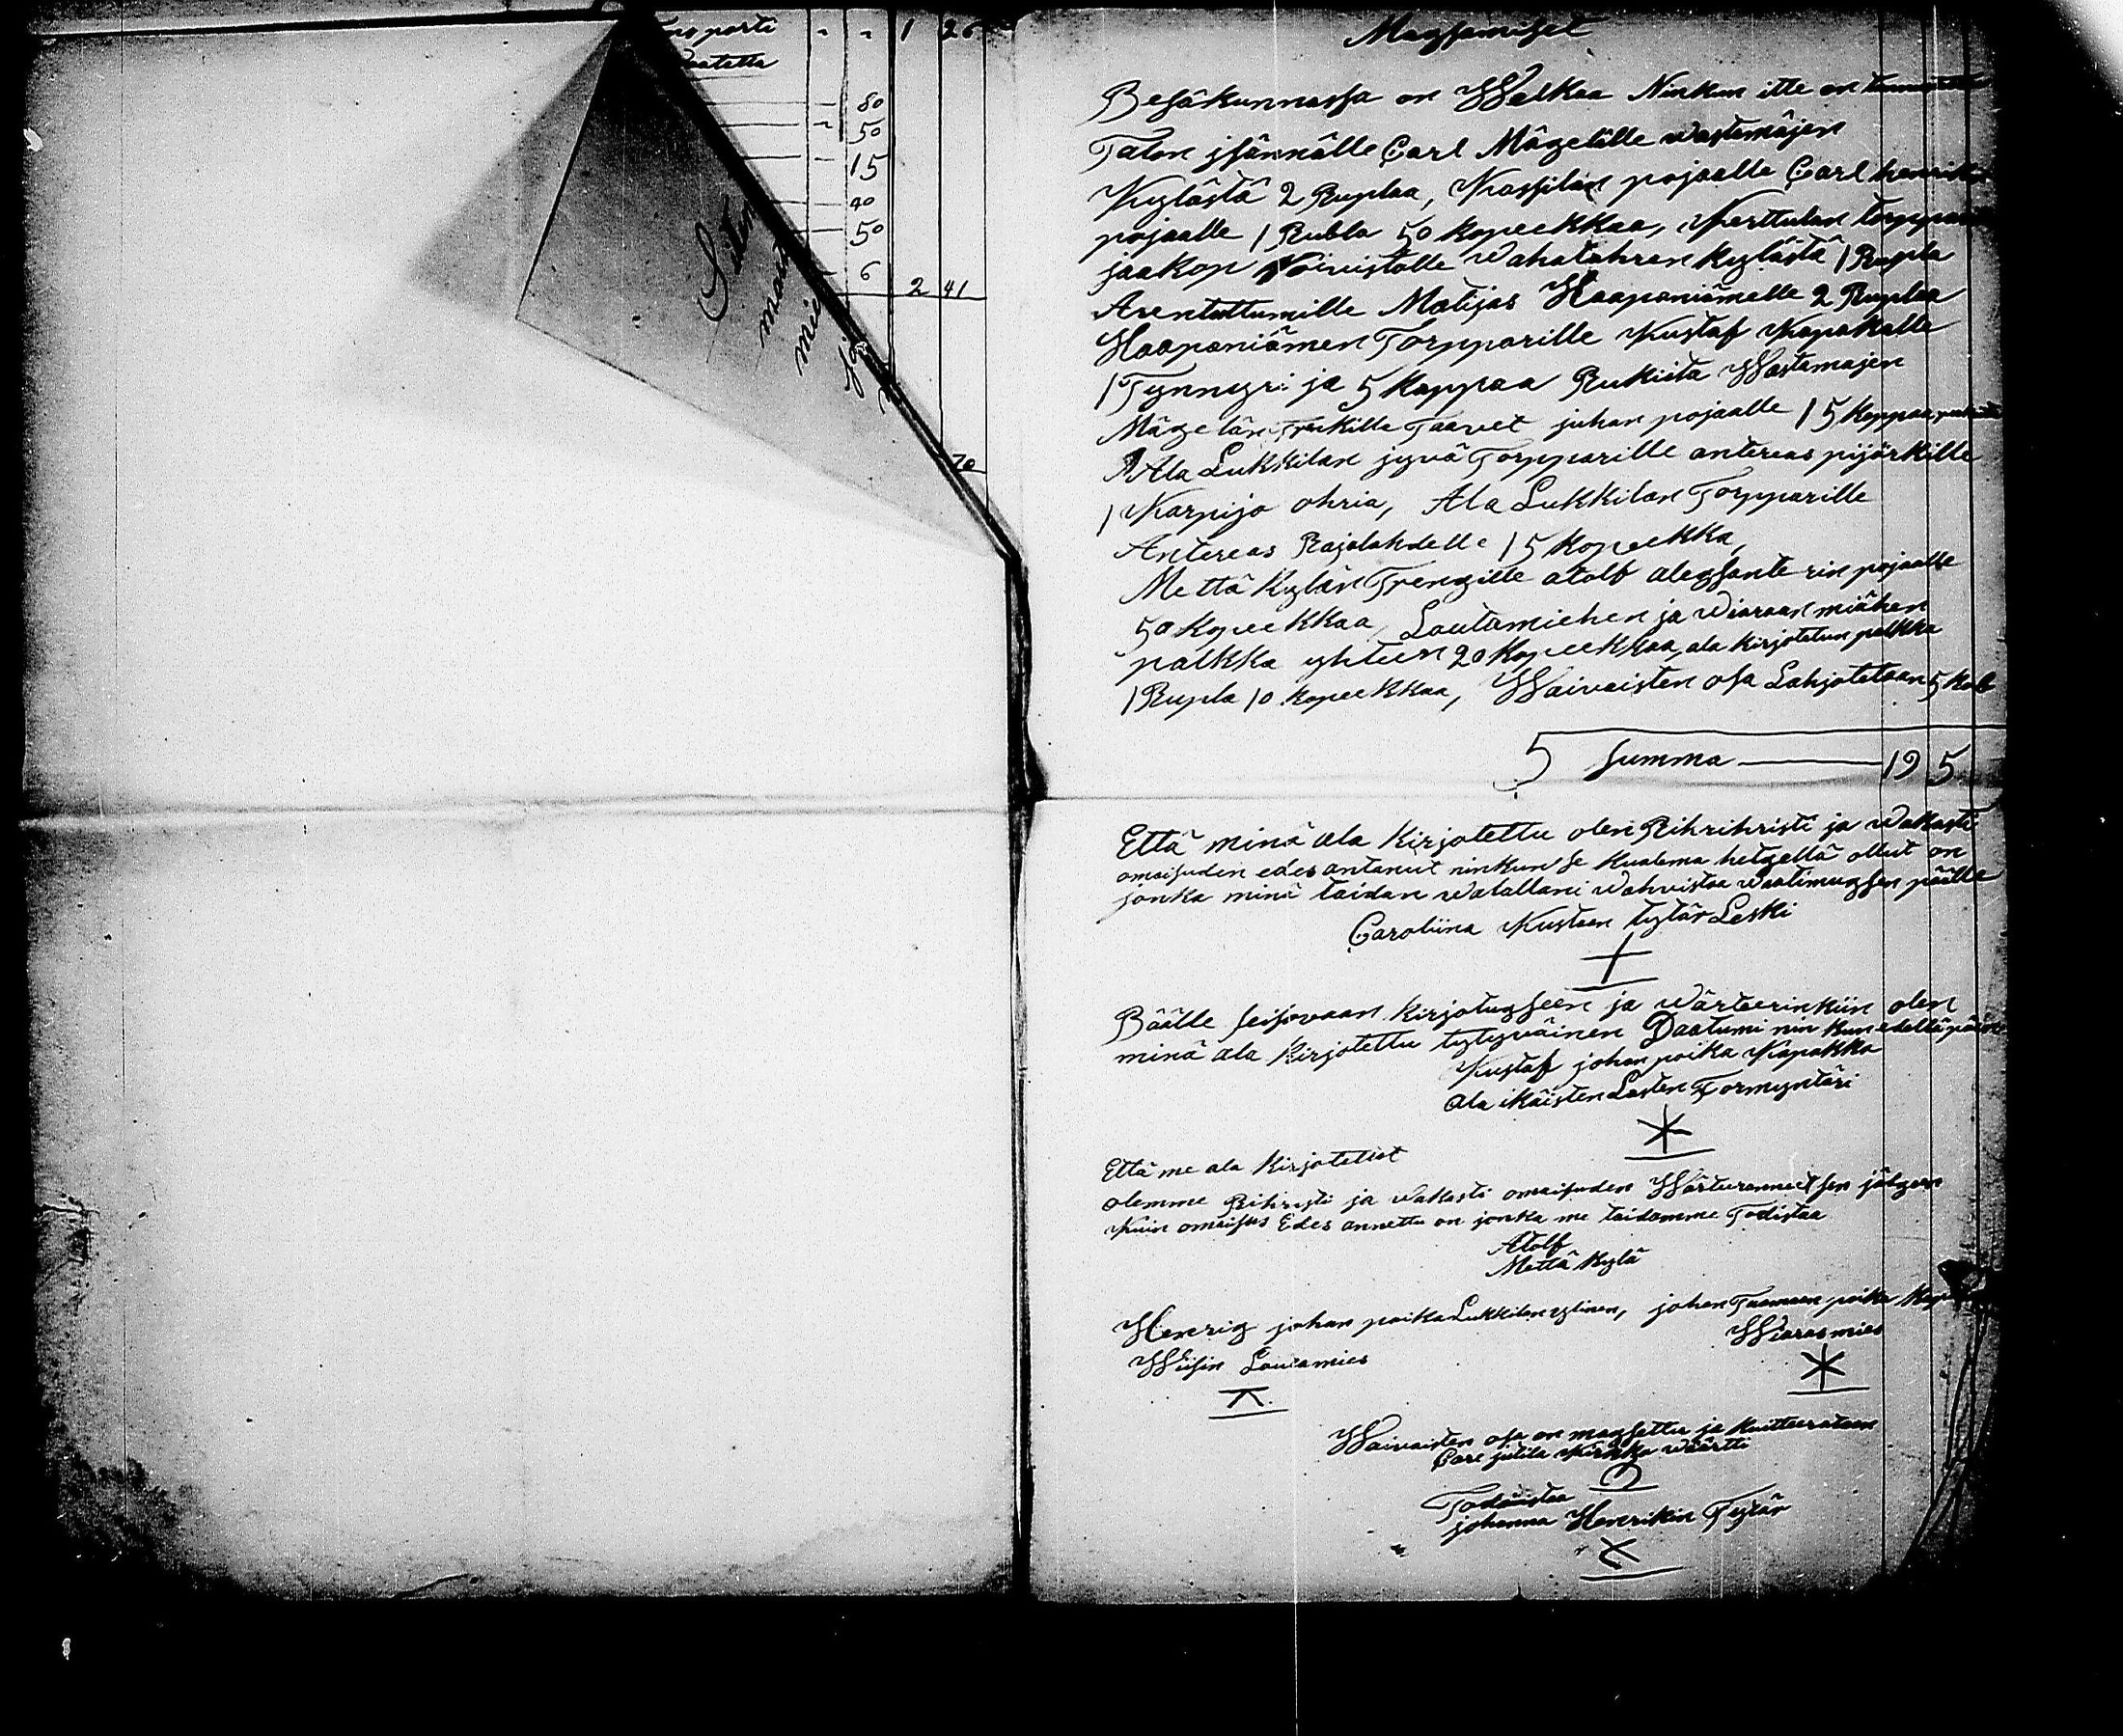 Transporti - - 1 26
80
50
15
40
50
6 2 41
Siten
70
Magsamiset
Besäkunnassa on Welkaa Ninkun itte on
Talon jsännälle Carl Mägelälle wastamäjen
Kylästä 2 Ruplaa, Kassilan pojaalle Carl henrikin
pojaalle 1 Rubla 50 kopeekkaa, Kerttulan torpparin
jaakop Koivistolle wahalahren kylästä 1 Rupla
Arentattumille Matijas Haapaniämelle 2 Ruplaa
Haapaniämen Torpparille Kustaf Kapakalle
1 Tynnyri ja 5 kappaa Rukiita Wastamäjen
Mägelän Trenkille Taavet juhan pojaalle 15 kappaa
Ala Lukkilan jyvä Torpparille antereas pijörkille
1 Karpijo ohria, Ala Lukkilan Torpparille
Antereas Rajalahdelle 15 kopeekka,
Mettä kylän Trengille atolf alegsanterin pojaalle
50 kopeekkaa, Lautamiehen ja wiaraan miähen
palkka yhteen 20 kopeekkaa, ala kirjotetun palkka
1 Rupla 10 kopeekkaa, Waivaisten osa Lahjotetaan 5 kob
5 summa 19 5
Että minä ala kirjotettu olen Rihrihristi ja wakasti
omaisuden edes antanut ninkun se kualema hetgellä ollut on
jonka minä taidan walallani wahvistaa waatimugsen päälle
Caroliina Kustaan tytär Leski
Päälle seisovaan kirjotugseen ja wärteerinkiin olen
minä ala kirjotettu tytyväinen Daatumi nin kun edellä päin
Kustaf johan poika Kapakka
ala ikäisten Lasten Formyntäri
Että me ala kirjotetut
olemme Rihristi ja wakasti omaisuden Wärteeranneet sen jälgeen
Kuin omaisus Edes annettu on jonka me taidamme Todistaa
Atolf
Mettä kylä
Henrig johan poika Lukkilan ylinen, johan Tuomaan poika
Wiarasmies
Wiisin Lautamies
Waivaisten osa on magsettu ja kuitteerataan
Carl jutila Kirkka wäärtti
Todaistaa
johanna Henrikin Tytär